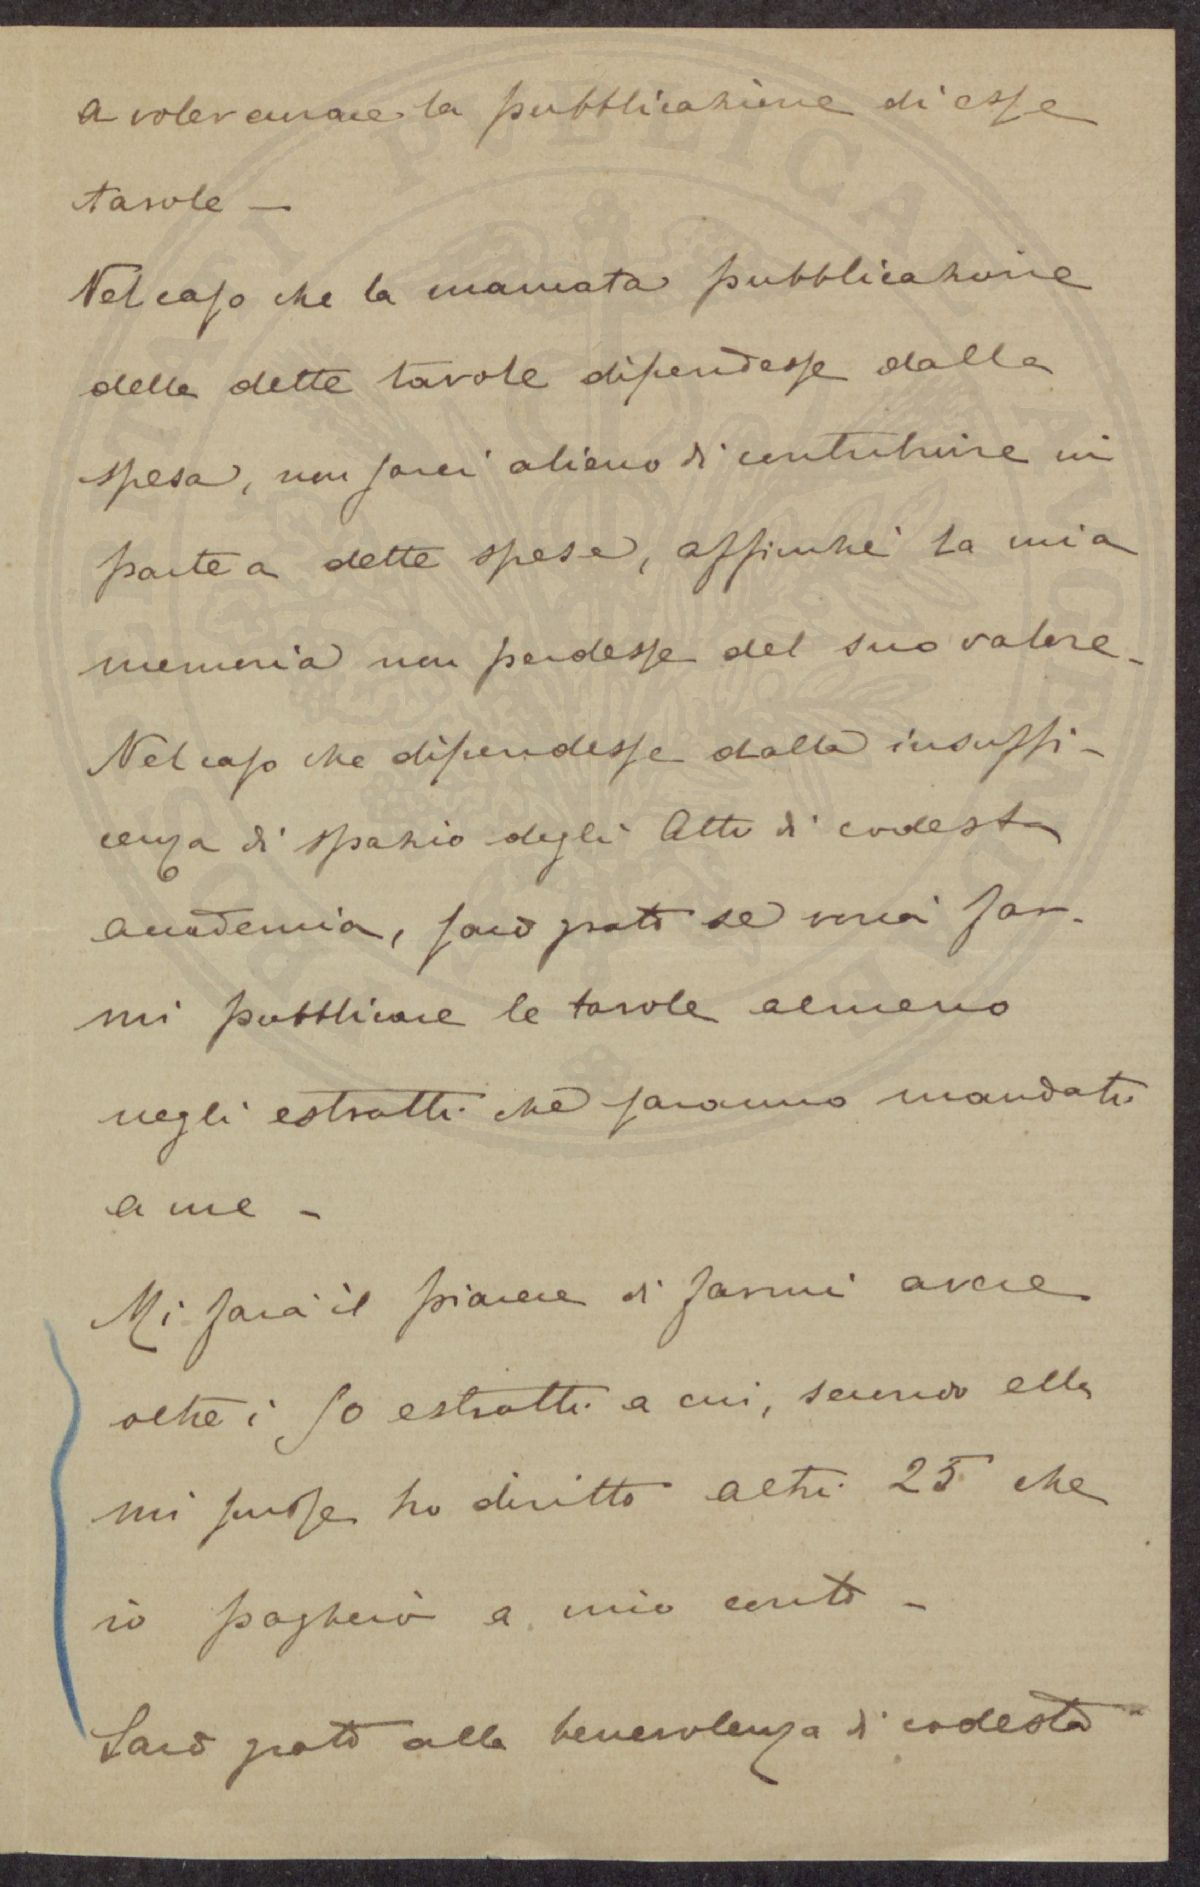 a voler curare la pubblicazione di esse
tavole —
Nel caso che la mancata pubblicazione
delle dette tavole dipendesse dalla
spesa, non sarei alieno di contribuire in
parte a dette spese, affinchè la mia
memoria non perdesse del suo valore -
Nel caso che dipendesse dalla insuffi-
cenza di spazio degli Atti di codesta
accademia, sarò grato se vorrà far-
mi pubblicare le tavole almeno
negli estratti che saranno mandati
a me -
Mi farà il piacere di farmi avere
oltre i 50 estratti a cui, secondo ella
mi scrisse ho diritto altri 25 che
io pagherò a mio conto -
Sarò grato alla benevolenza di codesta